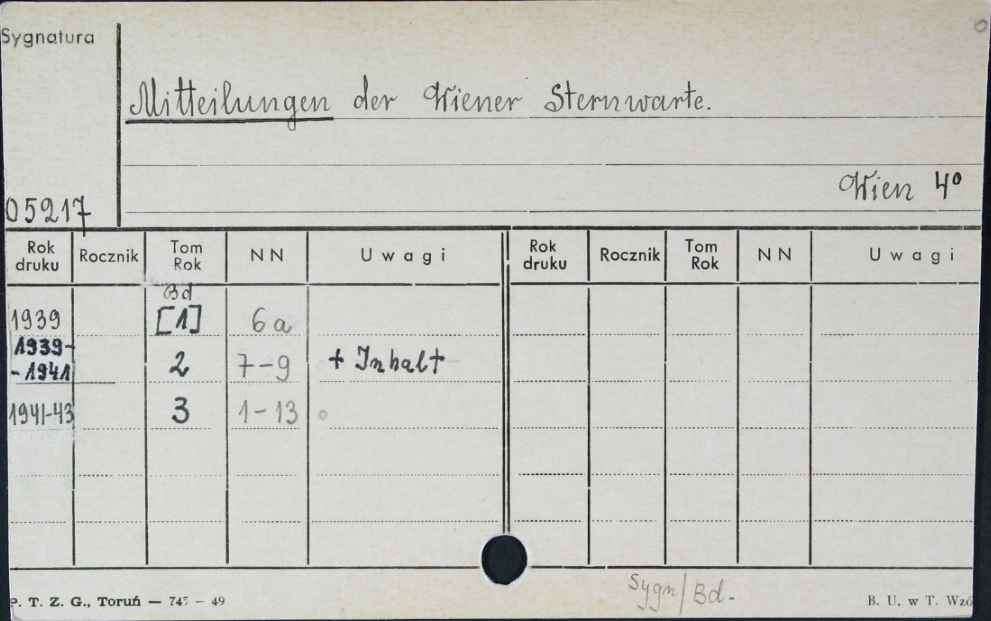 Sygnatura
Mitteilungen der Wiener Sternwarte.
Wien 4º
05217
Rok druku Rocznik Tom Rok NN Uwagi Rok druku Rocznik Tom Rok NN Uwagi
Bd
1939 [1] 6a
1939-
-1941 2 7-9 + Inhalt
1941-43 3 1-13
Sygn/Bd.
P. T. Z. G., Toruń — 747 — 49 B. U. w T. Wzó